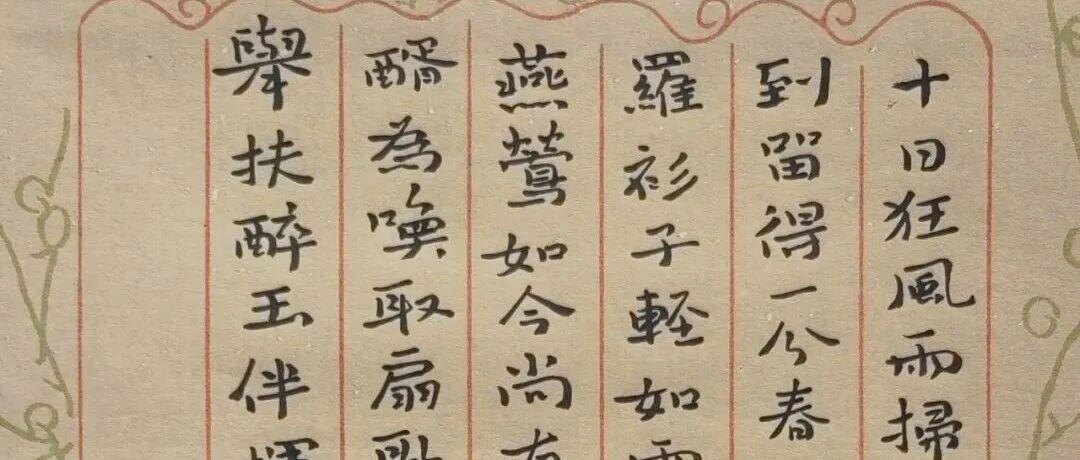 十日狂風雨掃
到留得一分春
羅衫子輕如雪
燕鶯如今尚有
醑為喚取扇
舉扶醉玉伴